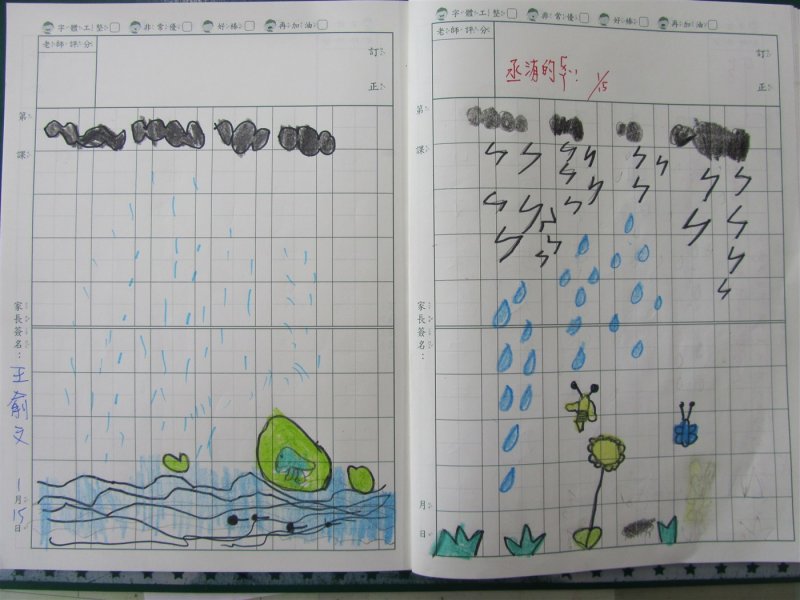 字體工整 非常優 好棒 再加油
老師評分
訂
正
第
課
家長簽名:
1
月
15
日
字體工整 非常優 好棒 再加油
老師評分
訂
正
1/15
第
課
家長簽名:
月
日